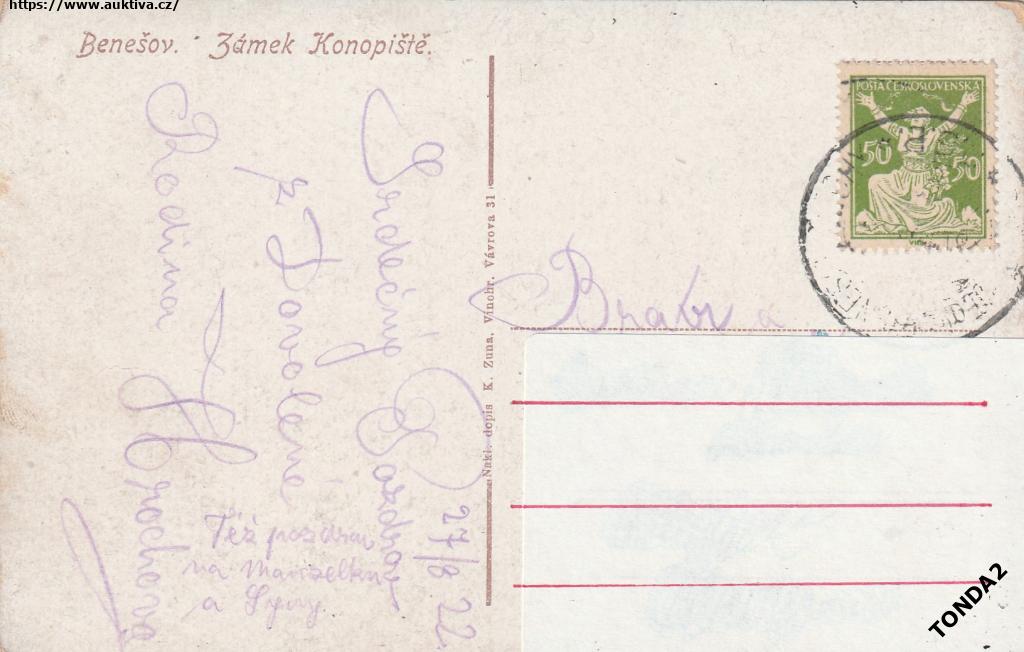 https://www.auktiva.cz/
Benešov. Zámek Konopiště.
POŠTA ČESKOSLOVENSKÁ
50 50
Nakl. dopis K. Zuna, Vinohr. Vávrova 31
27/8 22
Srdečný Pozdrav
z Dovolené
Rodina
Hrochova
Též pozdrav
na Manželku
a Syny
TONDA2